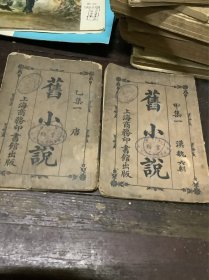 甲集一
漢魏六朝
舊小說
上海商務印書館出版
乙集一
唐
舊小說
上海商務印書館出版